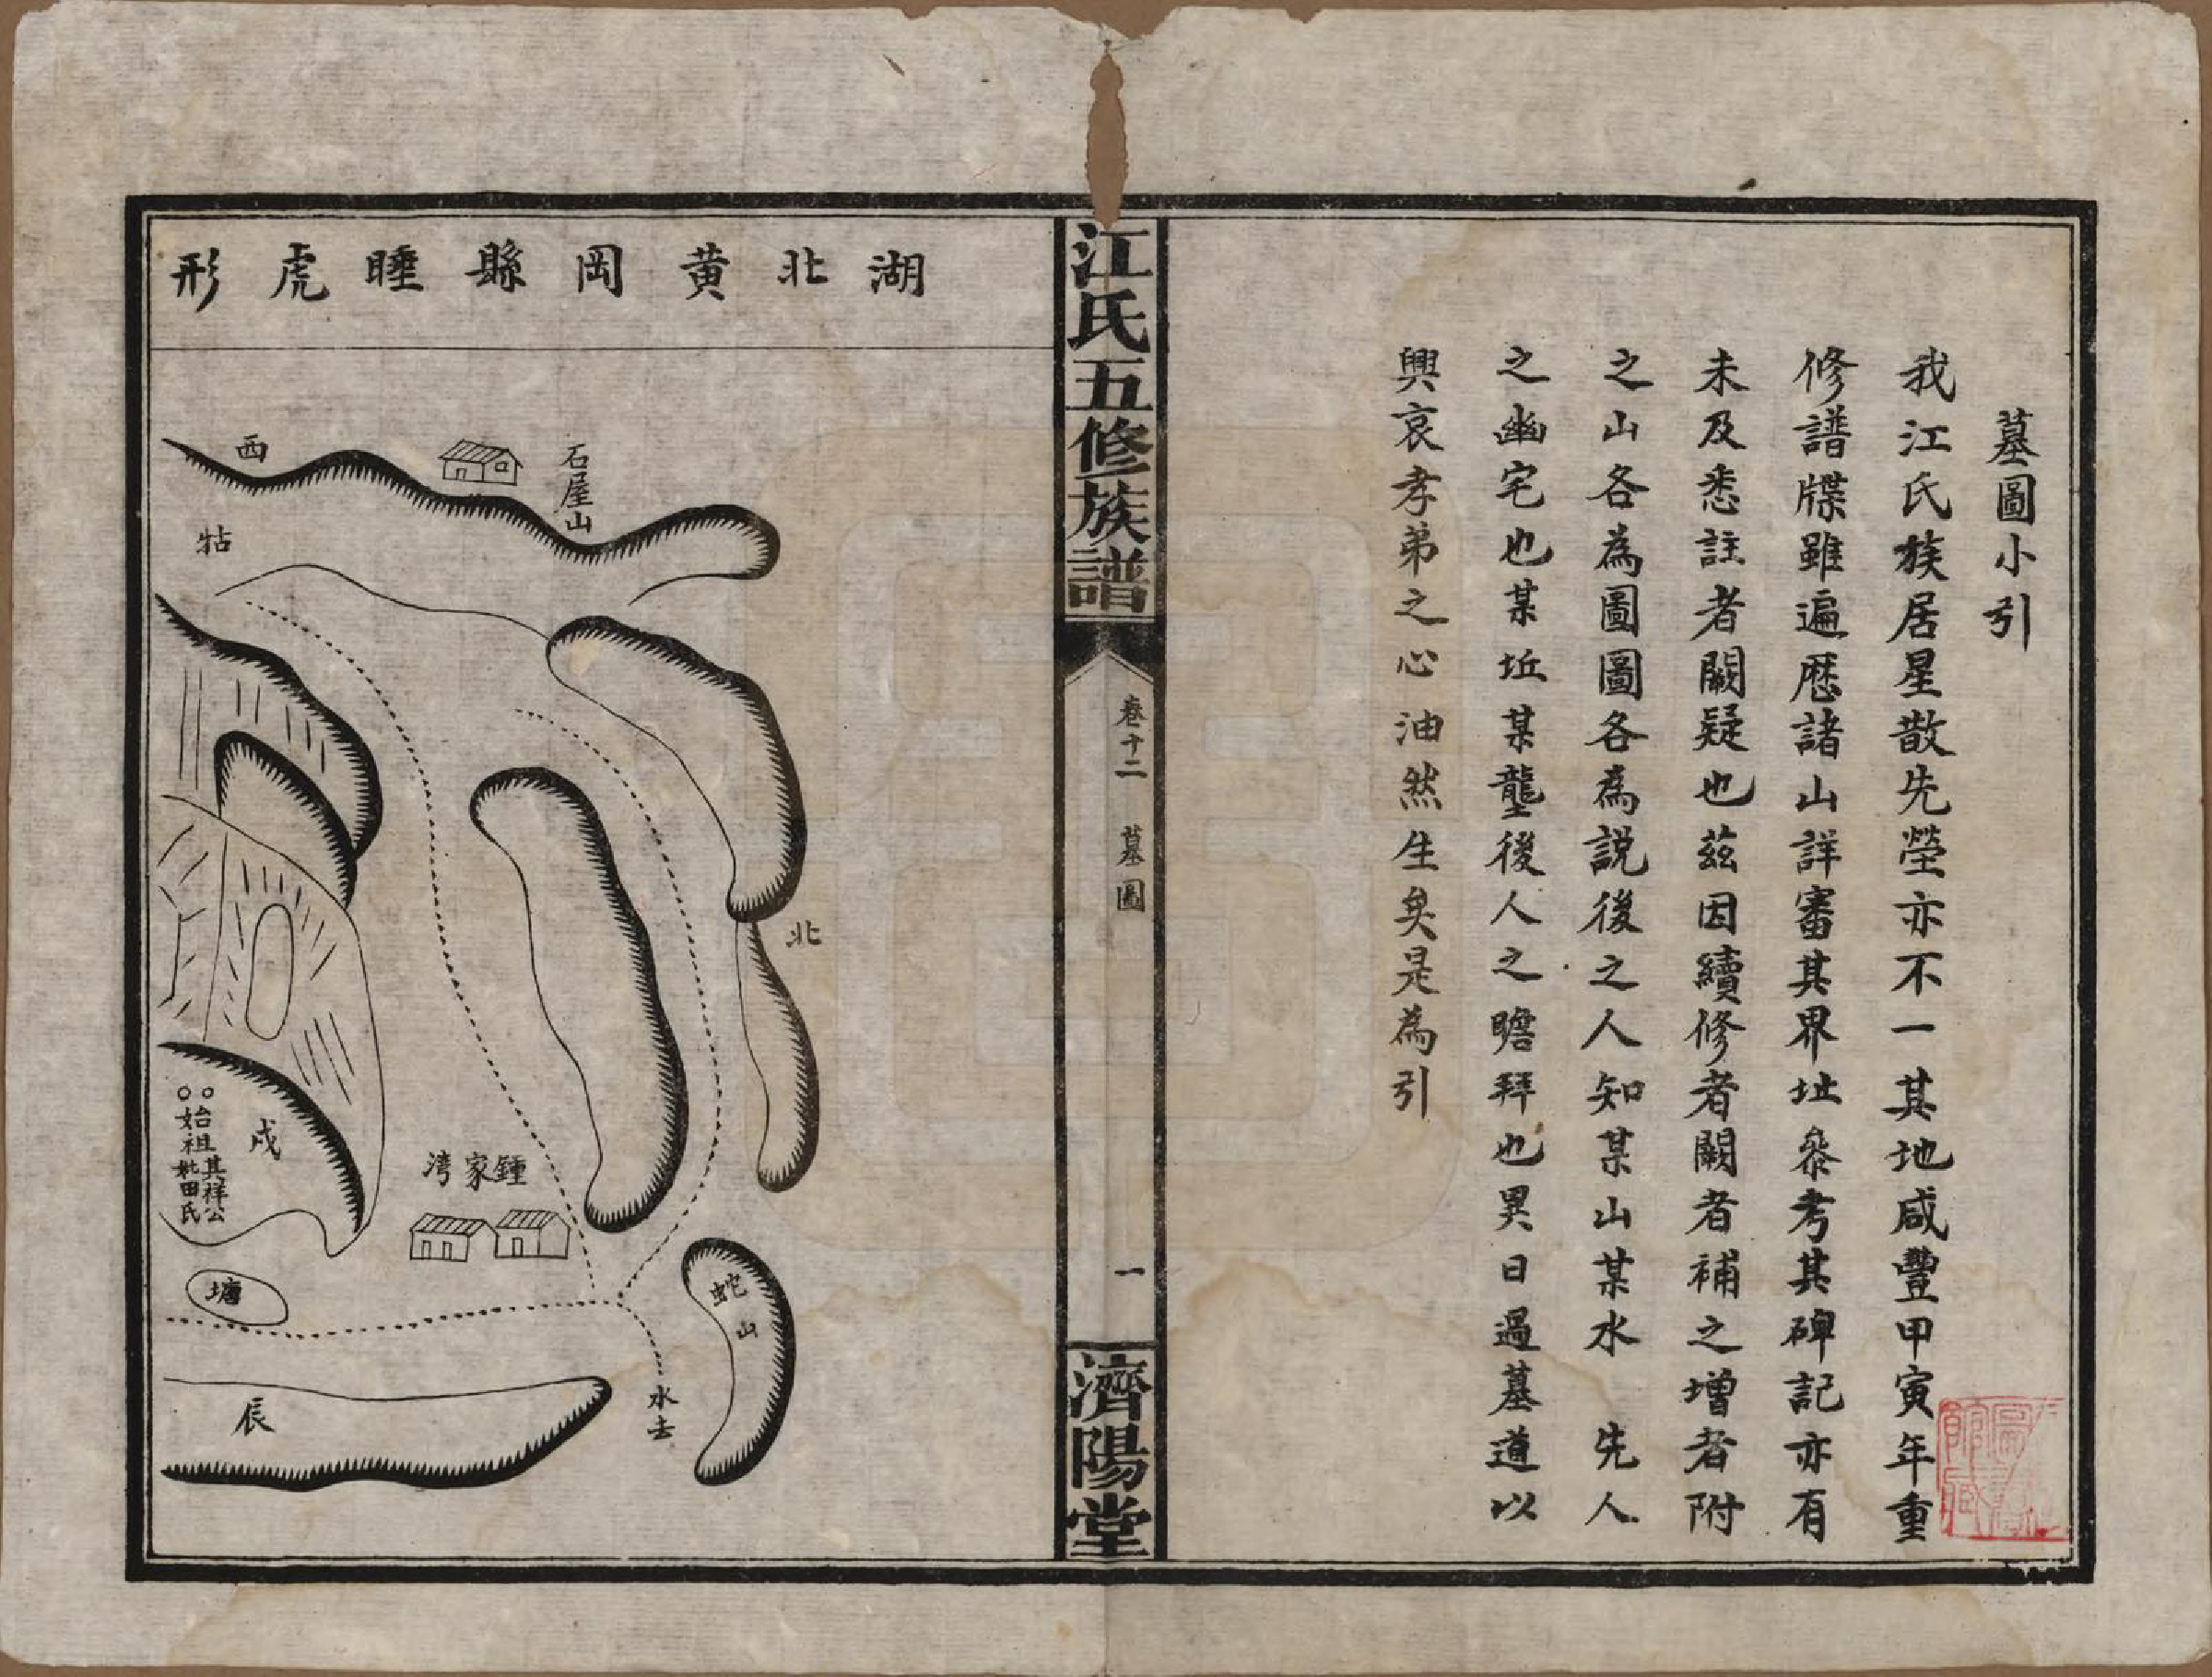 墓圖小引
我江氏族居星散先塋亦不一其地咸豐甲寅年重
修譜牒雖遍歷諸山詳審其界址叅考其碑記亦有
未及悉註者闕疑也茲因續修者闕者補之增者附
之山各為圖圖各為說後之人知某山某水　先人
之幽宅也某坵某壟後人之瞻拜也異日過墓道以
興哀孝弟之心油然生矣是為引
江氏五修族譜
卷十二　墓圖
一
濟陽堂
湖北黃岡縣睡虎形
石屋山
西
牯
北
戌
始祖其祥公妣田氏
鍾家湾
塘
蛇山
水去
辰